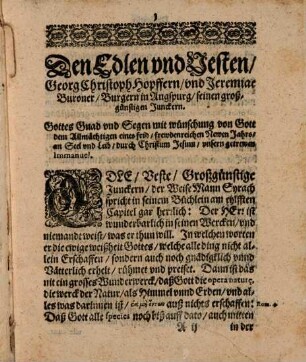 Den Edlen vnd Vesten/
Georg Christoph Hopffern/ vnd Jeremiae
Buroner/ Burgern in Augspurg/ seinen groß
günstigen Junckern.
Gottes Gnad vnd Segen mit wünschung von Gott
dem Allmächtigen eines fried/ frewdenreichen Newen Jahrs/
an Seel vnd Leib/ durch Christum Jesum/ vnsern getrewen
Immanuel/
EDLE/ Veste/ Großgünstige
Junckern/ der Weise Mann Syrach
spricht in seinem Büchlein am eylfften
Capitel gar herrlich: Der HErr ist
wunderbarlich in seinen Wercken/ vnd
niemande weiß/ was er thun will. In welchen worten
er die ewige weißheit Gottes/ welche alle ding nicht al-
lein Erschaffen/ sondern auch noch gnädigklich vnnd
Vätterlich erhelt/ rühmet vnd preiset. Dann ist das
nit ein grosses Wunderwerck/ daß Gott die opera naturae,
die werck der Natur/ als Himmel vnnd Erden/ vnd al-
les was darinnen ist/ auß nichts erschaffen:
Rom. 4
Daß Gott alle species noch biß auff dato/ auch mitten
A ij
in der